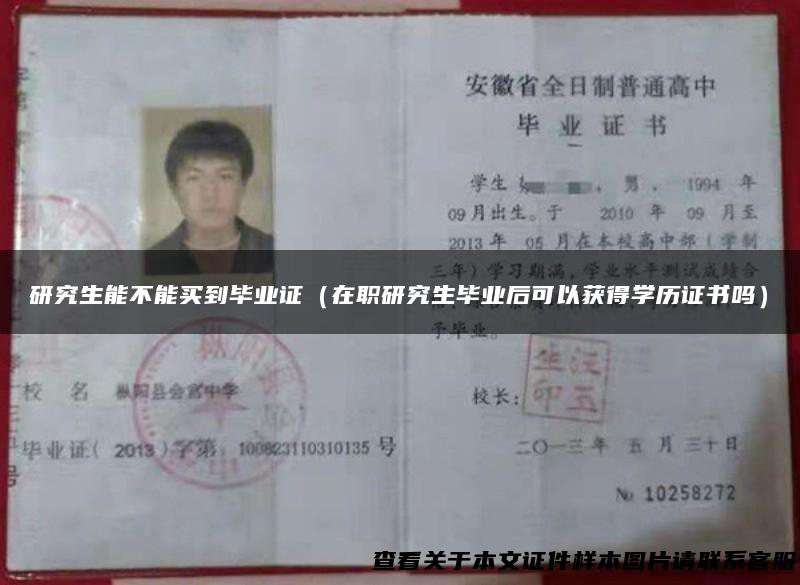 安徽省全日制普通高中
毕业证书
学生 男，1994 年
09月出生。于 2010 年 09 月至
2013年 05 月在本校高中部（学制
三年）学习期满，学业水平测试成绩合
研究生能不能买到毕业证（在职研究生毕业后可以获得学历证书吗）
予毕业。
校 名 枞阳县会宫中学
校长：
毕业证（2013）字第 100823110310135 号
二〇一三年 五 月 三十日
№ 10258272
查看关于本文证件样本图片请联系客服